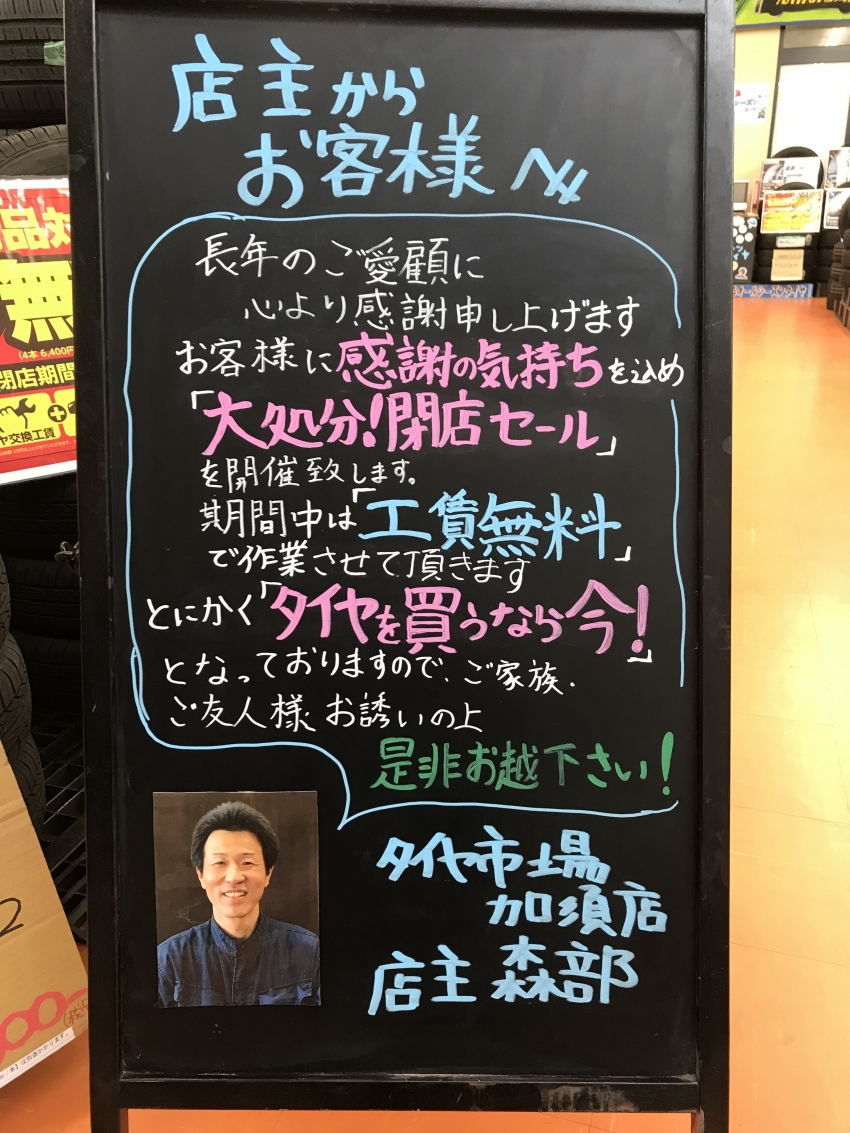 店主から
お客様へ
長年のご愛顧に
心より感謝申し上げます
お客様に感謝の気持ちを込め
「大処分!閉店セール」
を開催致します。
期間中は「工賃無料」
で作業させて頂きます
とにかく「タイヤを買うなら今!」
となっておりますので、ご家族、
ご友人様お誘いの上
是非お越下さい!
タイヤ市場
加須店
店主 森部
品対
無
(4本 6,400円
閉店期間
ヤ交換工賃
オールシーズンタイヤ